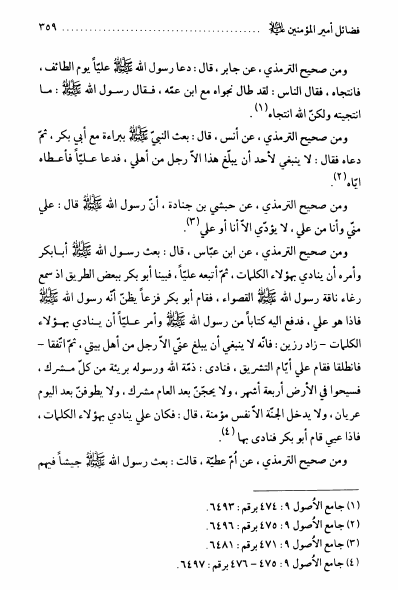 فضائل أمير المؤمنين ﷺ ........................................ ٣٥٩
ومن صحيح الترمذي ، عن جابر ، قال : دعا رسول الله ﷺ عليّاً يوم الطائف ،
فانتجاه ، فقال الناس : لقد طال نجواه مع ابن عمّه ، فـقال رسـول الله ﷺ : مـا
انتجيته ولكنّ الله انتجاه(١) .
ومن صحيح الترمذي ، عن أنس ، قال : بعث النبيّ ﷺ ببراءة مع أبي بكر ، ثمّ
دعاه فقال : لا ينبغي لأحد أن يبلّغ هذا الاّ رجل من أهلي ، فدعا عـليّاً فأعـطاه
ايّاه(٢).
ومن صحيح الترمذي ، عن حبشي بن جنادة ، أنّ رسول الله ﷺ قال : علي
منّي وأنا من علي ، لا يؤدّي الاّ أنا أو علي(٣).
ومن صحيح الترمذي ، عن ابن عبّاس ، قال : بعث رسـول الله ﷺ أبـابكر
وأمره أن ينادي بهؤلاء الكلمات ، ثمّ أتبعه عليّاً ، فبينا أبو بكر ببعض الطريق اذ سمع
رغاء ناقة رسول الله ﷺ القصواء ، فقام أبو بكر فزعاً يظنّ أنّه رسول الله ﷺ
فاذا هو علي ، فدفع اليه كتاباً من رسول الله ﷺ وأمر عـليّاً أن يـنادي بهـؤلاء
الكلمات – زاد رزين : فانّه لا ينبغي أن يبلغ عنّي الاّ رجل من أهل بيتي ، ثمّ اتّفقا –
فانطلقا فقام علي أيّام التشريق ، فنادى : ذمّة الله ورسوله بريئة من كلّ مـشرك ،
فسيحوا في الأرض أربعة أشهر ، ولا يحجّنّ بعد العام مشرك ، ولا يطوفنّ بعد اليوم
عريان ، ولا يدخل الجنّة الاّ نفس مؤمنة ، قال : فكان علي ينادي بهؤلاء الكلمات ،
فاذا عيي قام أبو بكر فنادى بها(٤).
ومن صحيح الترمذي ، عن اُمّ عطيّة ، قالت : بعث رسول الله ﷺ جيشاً فيهم
(١) جامع الاُصول ٩ : ٤٧٤ برقم : ٦٤٩٣ .
(٢) جامع الاُصول ٩ : ٤٧٥ برقم : ٦٤٩٦ .
(٣) جامع الاُصول ٩ : ٤٧١ برقم : ٦٤٨١ .
(٤) جامع الاُصول ٩ : ٤٧٥ – ٤٧٦ برقم : ٦٤٩٧ .